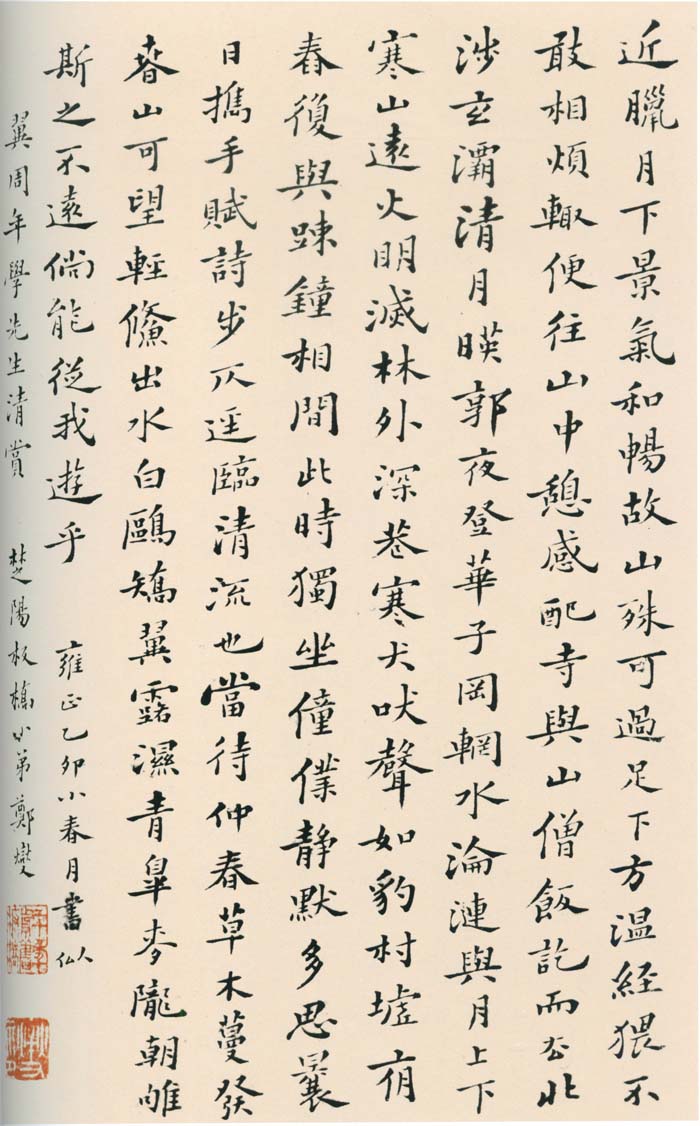 近臘月下景氣和暢故山殊可過足下方溫經猥不
敢相煩輙便往山中憩感配寺與山僧飯訖而去北
涉玄灞清月暎郭夜登華子岡輞水淪漣與月上下
寒山遠火明滅林外深巷寒犬吠聲如豹村墟夜
舂復與踈鐘相間此時獨坐僮僕静默多思曩
日攜手賦詩步仄逕臨清流也當待仲春草木蔓發
春山可望輕鯈出水白鷗矯翼露濕青皋麥隴朝雊
斯之不遠倘能從我遊乎 雍正乙卯小春月書
翼周年學先生清賞 楚陽板橋小弟鄭燮